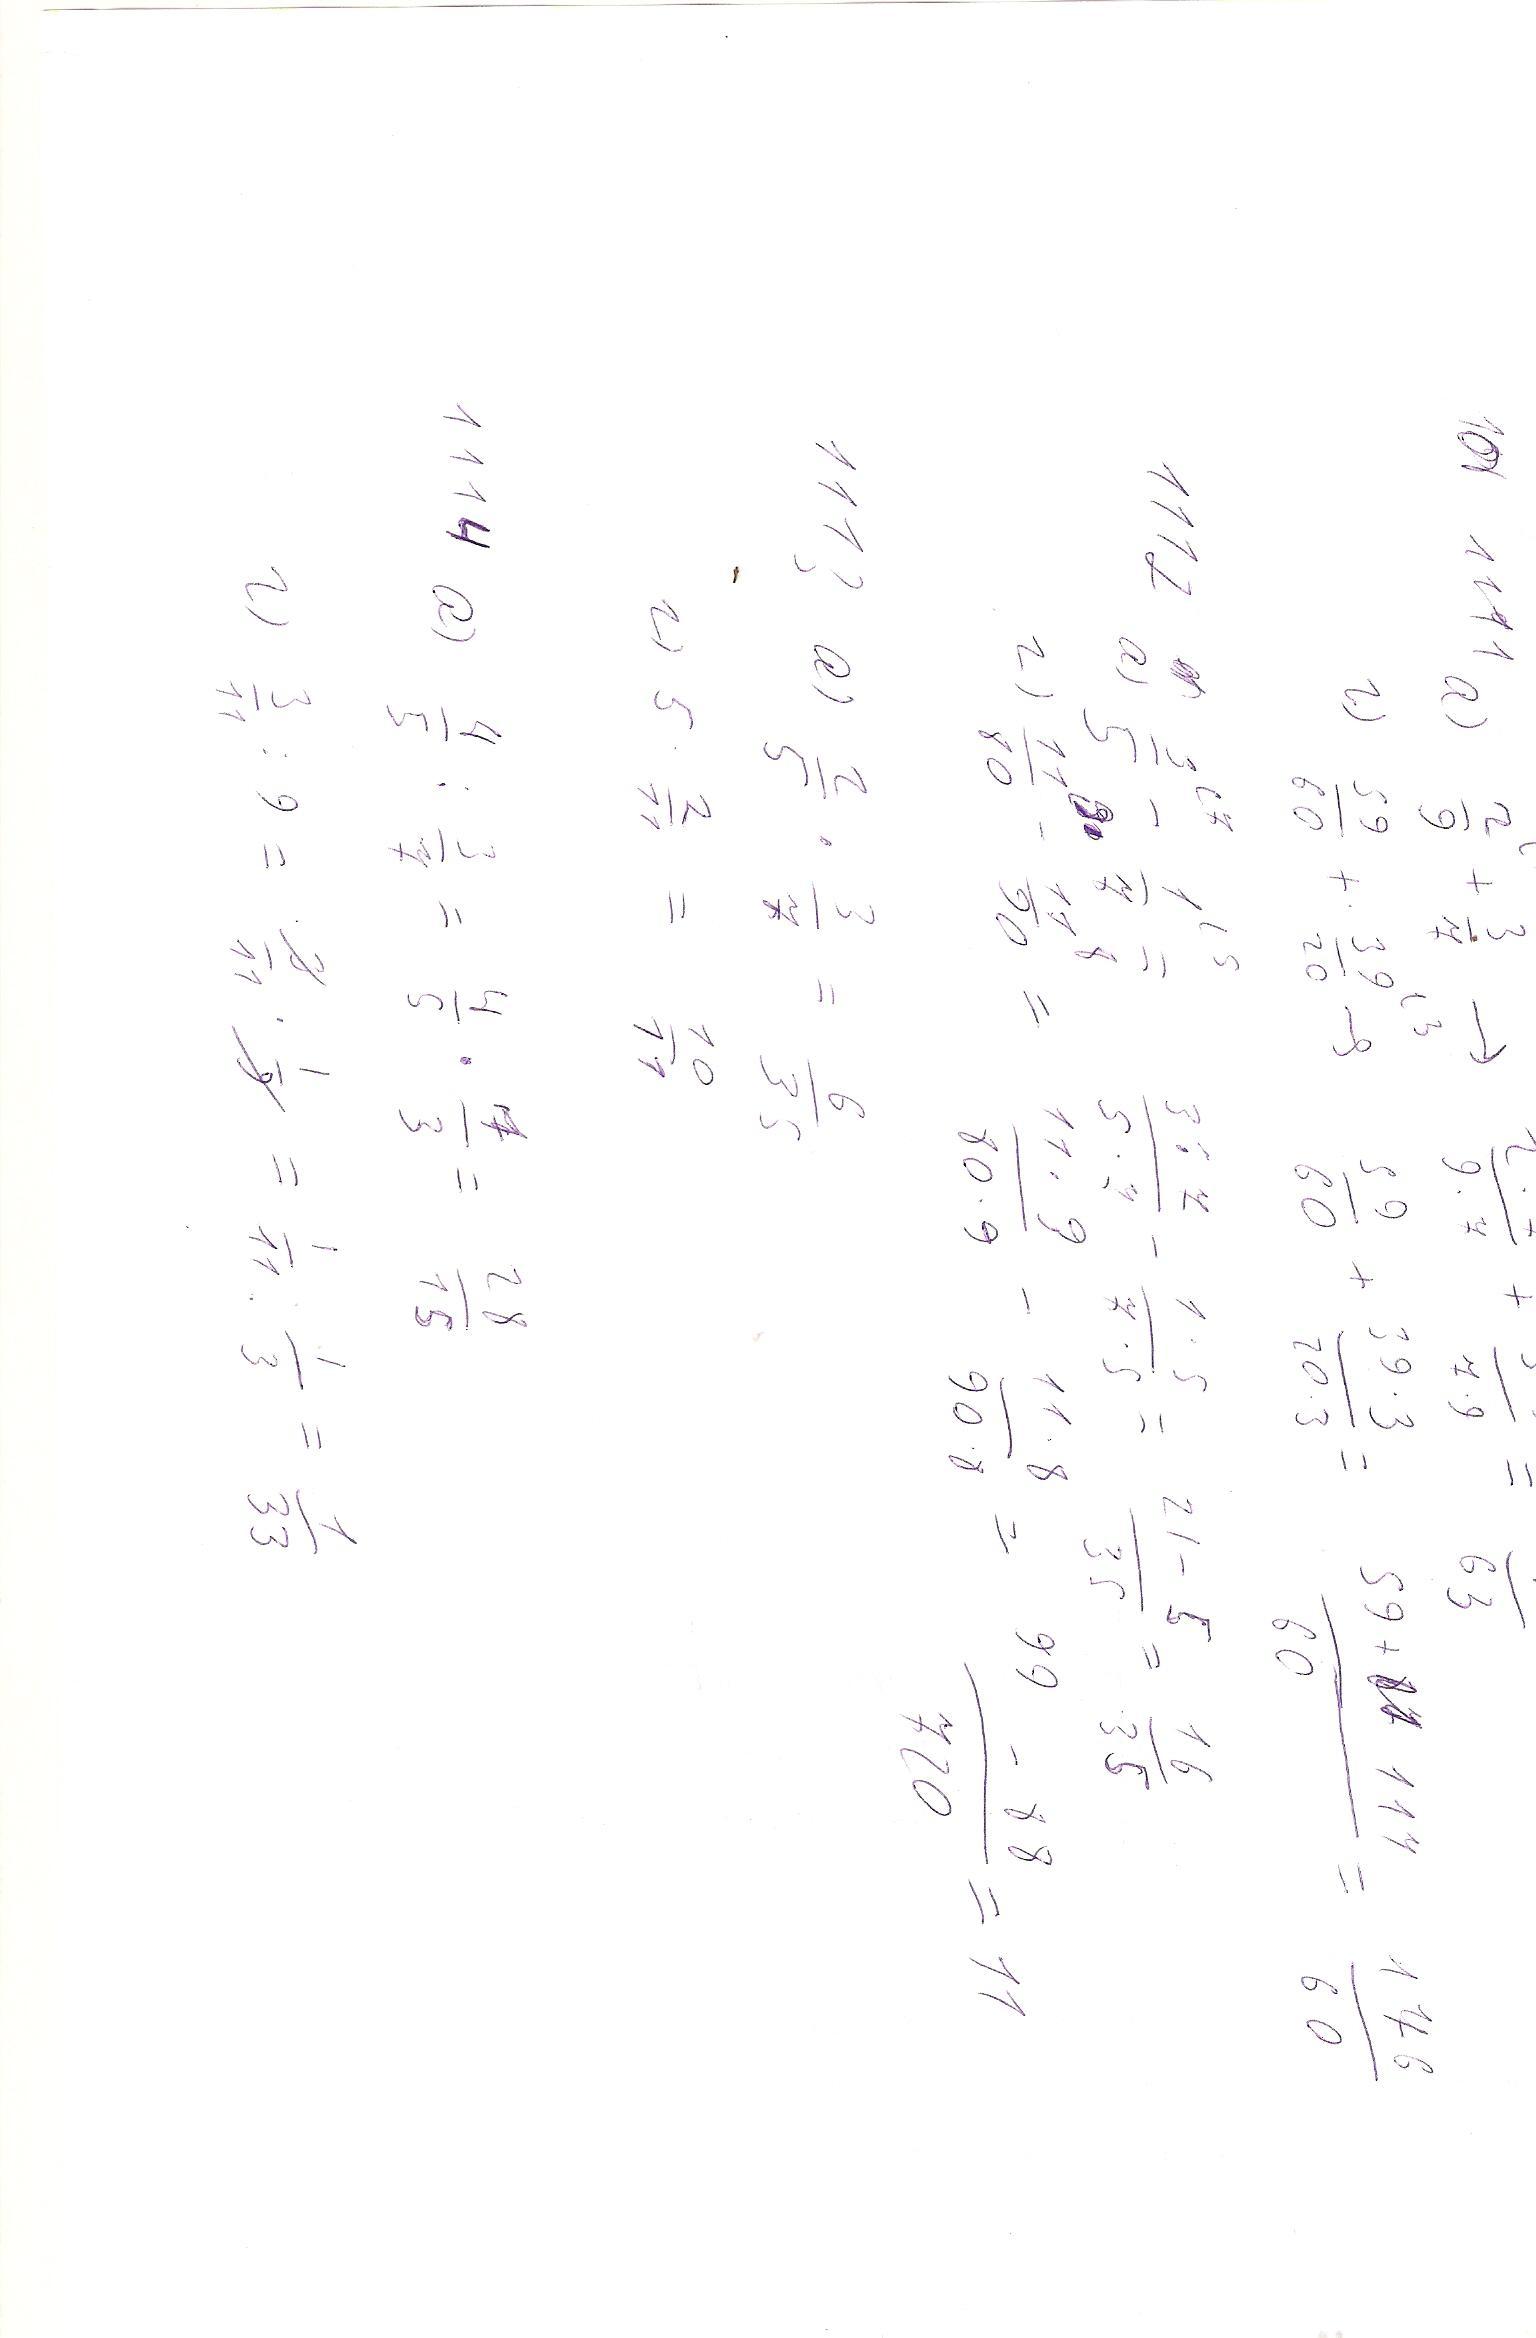 1111 а) 2/9 + 3/7 → 2·7/9·7 + /7·9 = /63
г) 59/60 + 39/20 → 59/60 + 39·3/20·3 = 59+117/60 = 176/60
1112 а) 3/5 - 1/7 = 3·7/5·7 - 1·5/7·5 = 21-5/35 = 16/35
г) 11/80 - 11/90 = 11·9/80·9 - 11·8/90·8 = 99-88/720 = 11
1113 а) 2/5 · 3/7 = 6/35
г) 5 · 2/11 = 10/11
1114 а) 4/5 : 3/7 = 4/5 · 7/3 = 28/15
г) 3/11 : 9 = 3/11 · 1/9 = 1/11 · 1/3 = 1/33